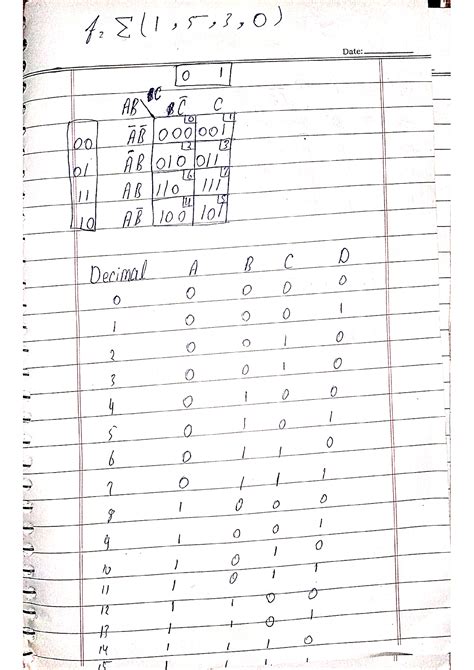 f = Σ(1, 5, 3, 0)
Date:
0 1
AB C C̅ C
00 A̅B̅ 000 0 001 1
01 A̅B 010 2 011 3
11 AB 110 6 111 7
10 AB̅ 100 4 101 5
Decimal A B C D
0 0 0 0 0
1 0 0 0 1
2 0 0 1 0
3 0 0 1 1
4 0 1 0 0
5 0 1 0 1
6 0 1 1 0
7 0 1 1 1
8 1 0 0 0
9 1 0 0 1
10 1 0 1 0
11 1 0 1 1
12 1 1 0 0
13 1 1 0 1
14 1 1 1 0
15 1 1 1 1